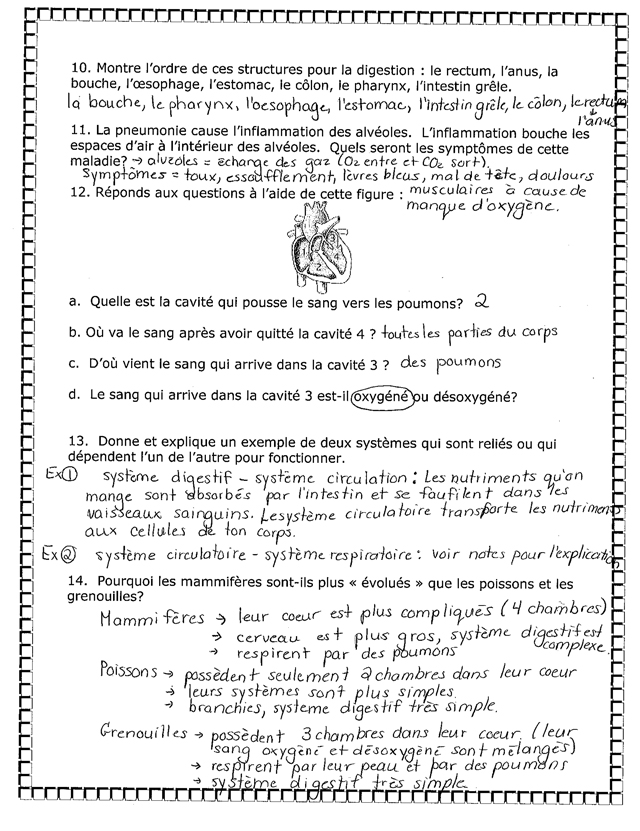 10. Montre l'ordre de ces structures pour la digestion : le rectum, l'anus, la
bouche, l'œsophage, l'estomac, le côlon, le pharynx, l'intestin grêle.
la bouche, le pharynx, l'oesophage, l'estomac, l'intestin grêle, le côlon, le rectum
↓
l'anus
11. La pneumonie cause l'inflammation des alvéoles. L'inflammation bouche les
espaces d'air à l'intérieur des alvéoles. Quels seront les symptômes de cette
maladie? → alvéoles = échange des gaz (O2 entre et CO2 sort).
Symptômes = toux, essoufflement, lèvres bleus, mal de tête, doulours
musculaires à cause de
manque d'oxygène.
12. Réponds aux questions à l'aide de cette figure :
1
2
3
4
a. Quelle est la cavité qui pousse le sang vers les poumons? 2
b. Où va le sang après avoir quitté la cavité 4 ? toutes les parties du corps
c. D'où vient le sang qui arrive dans la cavité 3 ? des poumons
d. Le sang qui arrive dans la cavité 3 est-il oxygéné ou désoxygéné?
13. Donne et explique un exemple de deux systèmes qui sont reliés ou qui
dépendent l'un de l'autre pour fonctionner.
Ex① système digestif - système circulation : Les nutriments qu'on
mange sont absorbés par l'intestin et se faufilent dans les
vaisseaux sainguins. Le système circulatoire transporte les nutriments
aux cellules de ton corps.
Ex② système circulatoire - système respiratoire : voir notes pour l'explication
14. Pourquoi les mammifères sont-ils plus « évolués » que les poissons et les
grenouilles?
Mammifères → leur coeur est plus compliqués (4 chambres)
→ cerveau est plus gros, système digestif est
complexe.
→ respirent par des poumons
Poissons → possèdent seulement 2 chambres dans leur coeur
→ leurs systèmes sont plus simples.
→ branchies, systeme digestif très simple.
Grenouilles → possèdent 3 chambres dans leur coeur (leur
sang oxygéné et désoxygéné sont mélangés)
→ respirent par leur peau et par des poumons
→ système digestif très simple